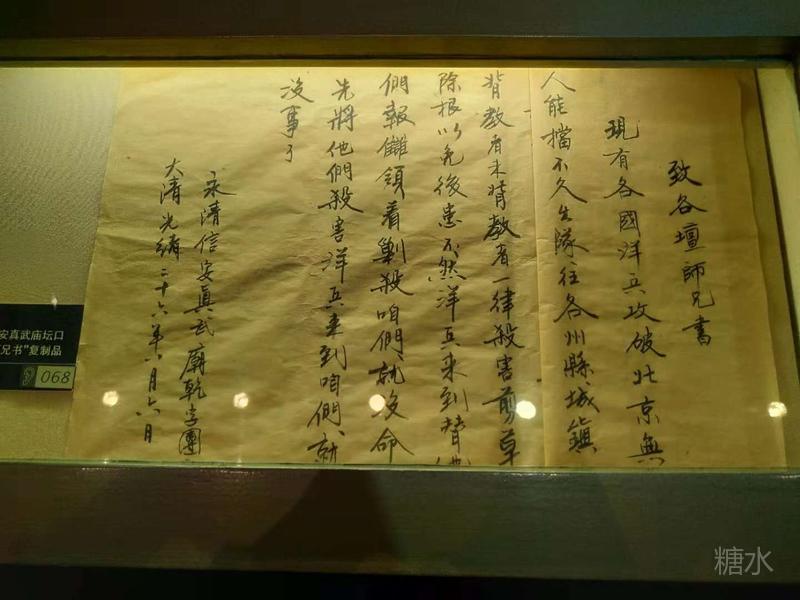 致各壇師兄書
現有各國洋兵攻破北京無
人能擋不久出隊往各州縣城鎮
背教者未背教者一律殺害剪草
除根以免後患不然洋兵來到替他
們報讎領着剿殺咱們就沒命
先將他們殺害洋兵來到咱們就
沒事了
永清信安真武廟乾字團
大清光緒二十六年六月六日
安真武庙坛口
兄书”复制品
068
糖水